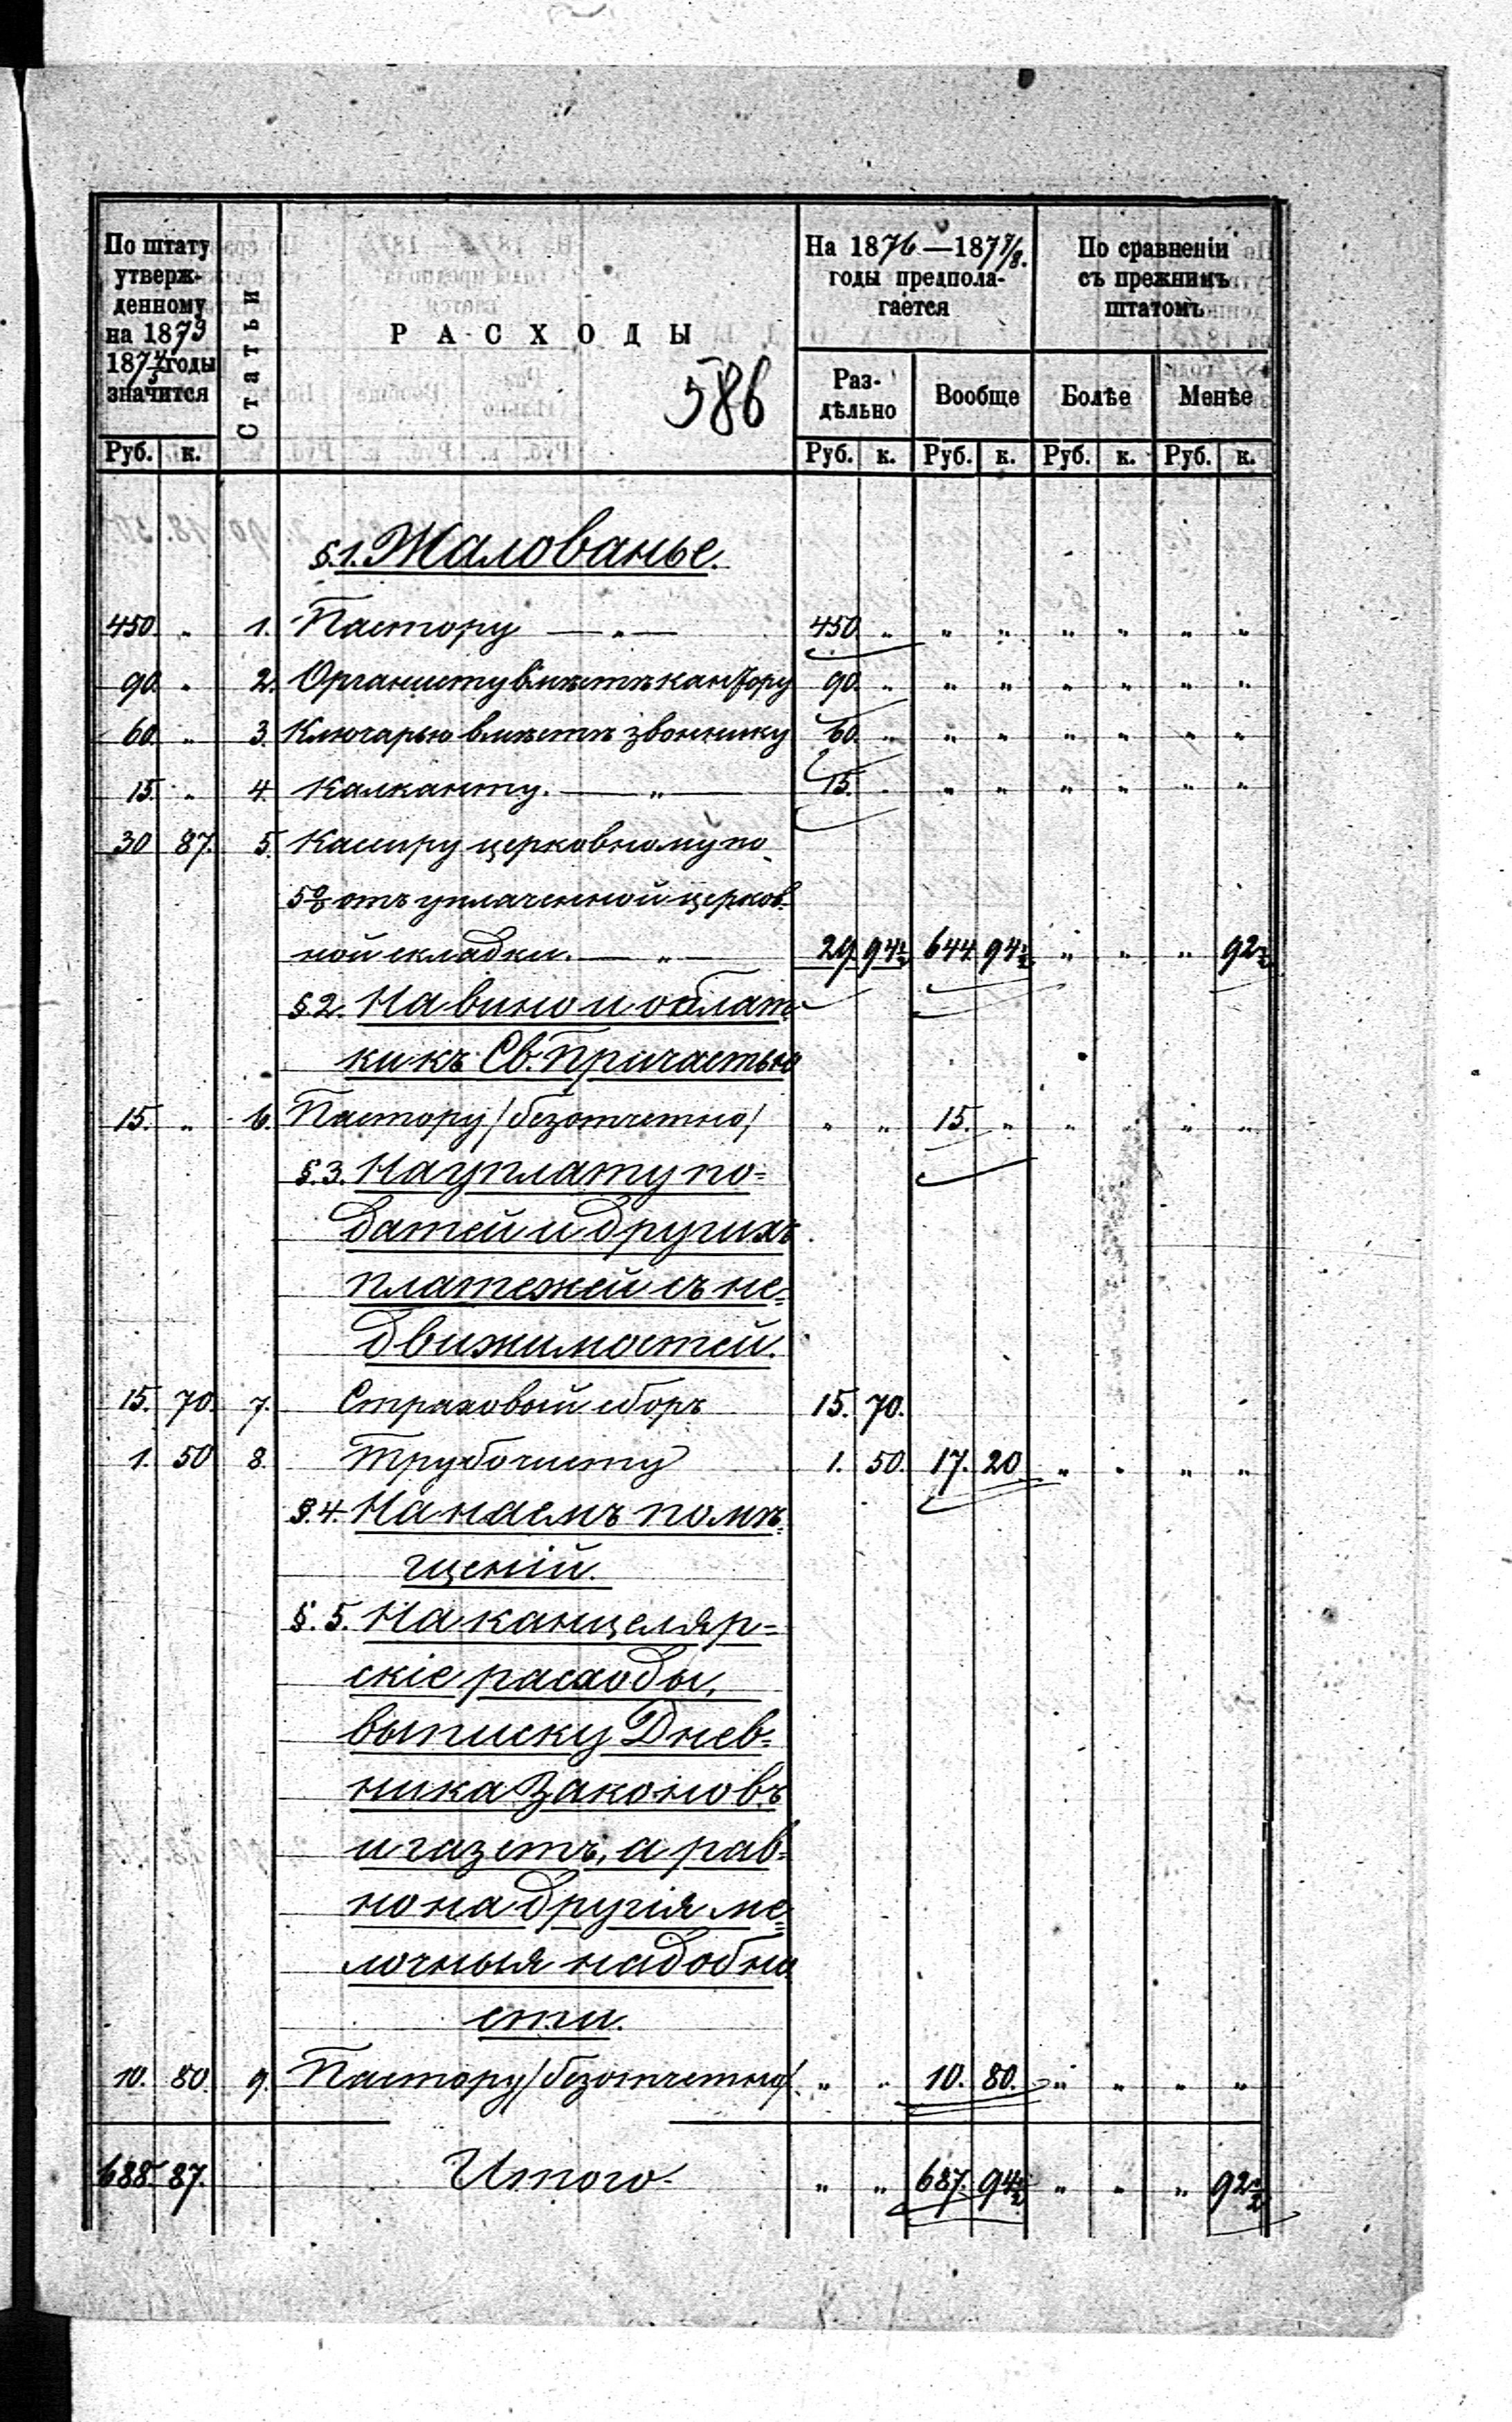 По штату утверж- денному на 1873 187 4/5 годы значится
Статьи
РАСХОДЫ
586
На 1876—187 7/8. годы предпола- гается
По сравненіи съ прежнимъ штатомъ
Раз- дѣльно Вообще Болѣе Менѣе
Руб. к. Руб. к. Руб. к. Руб. к. Руб. к.
§.1. Жалованье.
450. „ 1. Пастору — „ — 450. „ „ „ „ „ „ „
90. „ 2. Органисту вмѣстѣ кантору 90. „ „ „ „ „ „ „
60. „ 3. Ключарью вмѣстѣ звоннику 60. „ „ „ „ „ „ „
15. „ 4. Калканту. — „ — 15. „ „ „ „ „ „ „
30 87. 5. Касиру церковному по
5% отъ уплаченной церков-
ной складки. — „ — 29 94½ 644 94½ „ „ „ 92½
§.2. На вино и облат-
ки къ Св. Причастью
15. „ 6. Пастору /безотчетно/ „ „ 15. „ „ „ „ „
§.3. На уплату по-
датей и другихъ
платежей съ не-
движимостей.
15. 70. 7. Страховый сборъ 15. 70.
1. 50 8. Трубочисту 1. 50. 17. 20 „ „ „ „
§.4. На наемъ помѣ-
щеній.
§.5. На канцеляр-
скіе расходы,
выписку Днев-
ника Законовъ
и газетъ, а рав-
но на другія ме-
лочныя надобно
сти.
10. 80. 9. Пастору /безотчетно/ „ „ 10. 80. „ „ „ „
688. 87. Итого „ „ 687. 94½ „ „ „ 92½